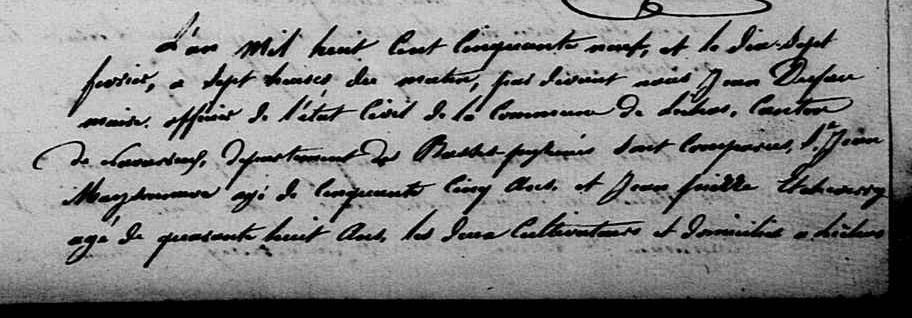 L'an mil huit cent cinquante neuf, et le dix-sept
fevrier, a sept heures du matin, par devant nous Jean
maire, officier de l'état civil de la commune de Lichos, canton
de Navarrenx, departement des Basses-pyrénées sont comparus, Sr Jean
agé de cinquante cinq ans, et Jean pierre Etchecoury
agé de quarante huit ans, les deux cultivateurs et domiciliés a Lichos